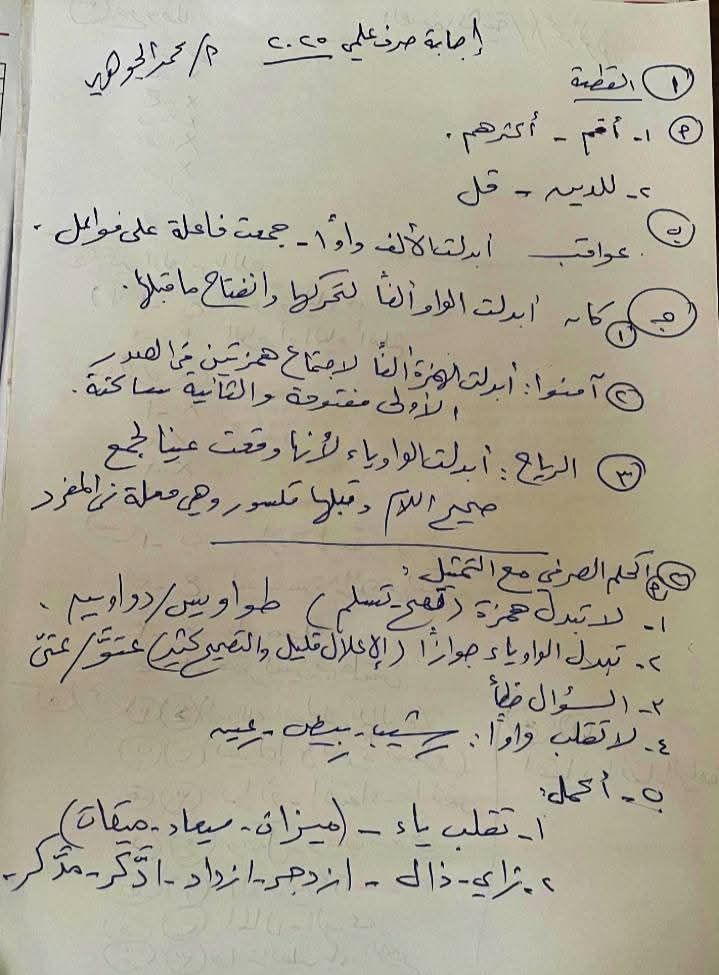 إجابة صرف علمي ٢٠٢٥ م/ محمد الجوهري
١ القطعة
٢ ١- أقم - أكثرهم .
٢- للدين - قل
ب عواقب أبدلت الألف واوًا - جمعت فاعلة على فواعل .
جـ ١ كان أبدلت الواو ألفًا لتحركها وانفتاح ما قبلها .
٢ آمنوا : أبدلت الهمزة ألفًا لاجتماع همزتين في الصدر
الأولى مفتوحة والثانية ساكنة .
٣ الرياح : أبدلت الواو ياء لأنها وقعت عينا لجمع
صحيح اللام وقبلها مكسور وهي معلة في المفرد
الحكم الصرفي مع التمثيل :
١- لا تبدل همزة (تصح - تسلم) طواويس / دواوين .
٢- تبدل الواو ياء جوازًا (الإعلال قليل والتصحيح كثير) عتوّ / عتيّ
٣- السؤال خطأ
٤- لا تقلب واوًا : شيب - بيض - عين
ب - أكمل :
١- تقلب ياء - (ميزان - ميعاد - ميقات)
٢- زاي - ذال - ازدجر - ازداد - ادَّكر - مدَّكر -